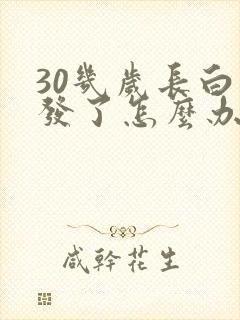 30幾歲長白
發了怎麼办
咸幹花生